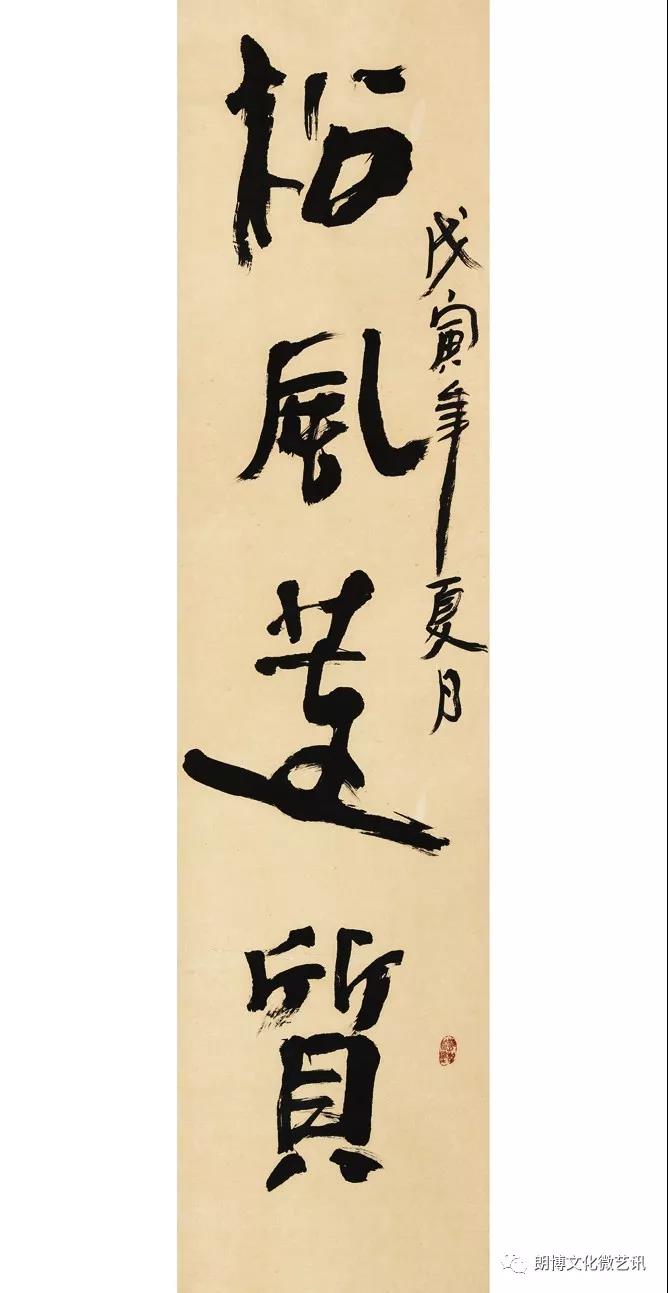 松風蓮質
戊寅年夏月
朗博文化微艺讯